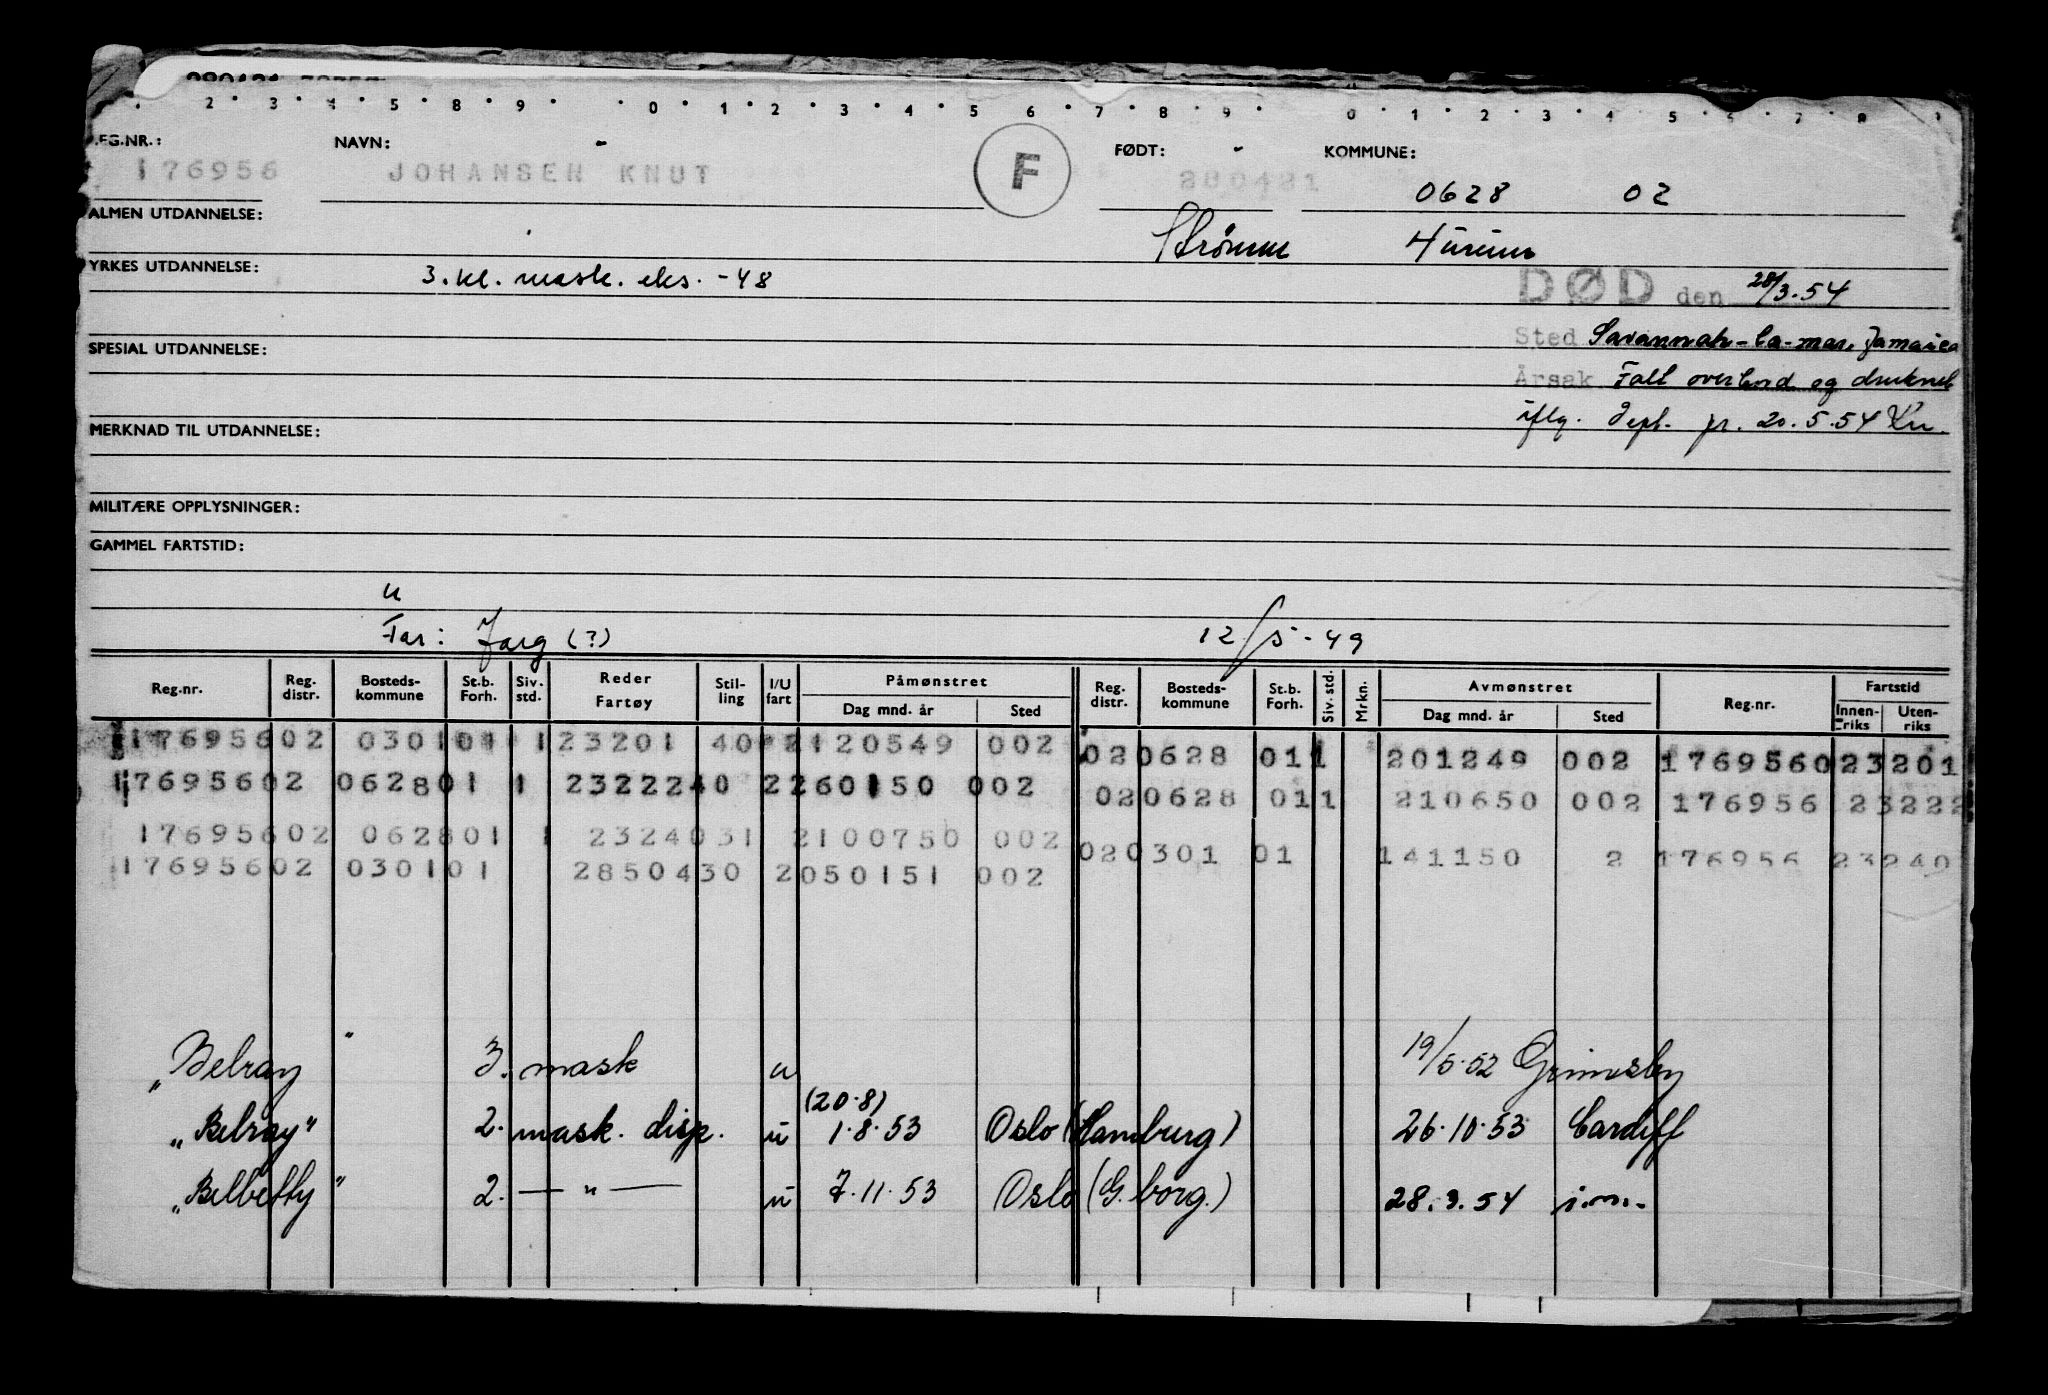 2 · 3 · 4 · 5 · 8 · 9 · · 0 · 1 · 2 · 3 · 4 · 5 6 · 7 · 8 · 9 · 0 · 1 · 2 · 3 · 4 · 5 · 6 · 7 · 8 · 1
EG.NR.: NAVN: - F FØDT: - KOMMUNE:
176956 JOHANSEN KNUT 280421 0628 02
ALMEN UTDANNELSE: Strömm Hurum
YRKES UTDANNELSE: 3. kl. mask. eks. -48
DØD den 28/3.54
Sted Savannah-la-mar, Jamaica
SPESIAL UTDANNELSE:
Årsak Falt overbord og druknet
iflg. Dept. pr. 20.5.54
MERKNAD TIL UTDANNELSE:
MILITÆRE OPPLYSNINGER:
GAMMEL FARTSTID:
u
Far: Jarg (?) 12/5-49
Reg.nr. Reg. distr. Bosteds-kommune St.b. Forh. Siv. std. Reder Fartøy Stil-ling I/U fart Påmønstret Dag mnd. år Sted Reg. distr. Bosteds-kommune St.b. Forh. Siv. std. Mrkn. Avmønstret Dag mnd. år Sted Reg.nr. Fartstid Innen-riks Uten-riks
17695602 030101 1 23201 40 2120549 002 020628 011 201249 002 176956023201
17695602 062801 1 2322240 2260150 002 020628 011 210650 002 176956 23222
17695602 062801 1 2324031 2100750 002 020301 01 141150 2 176956 23240
17695602 030101 2850430 2050151 002
"Belray" 3. mask u 19/5.52 Grimsby
(20.8)
"Belray" 2. mask. disp. u 1.8.53 Oslo (Hamburg) 26.10.53 Cardiff
"Belbetty" 2. — " — u 7.11.53 Oslo (G.borg.) 28.3.54 i.m.